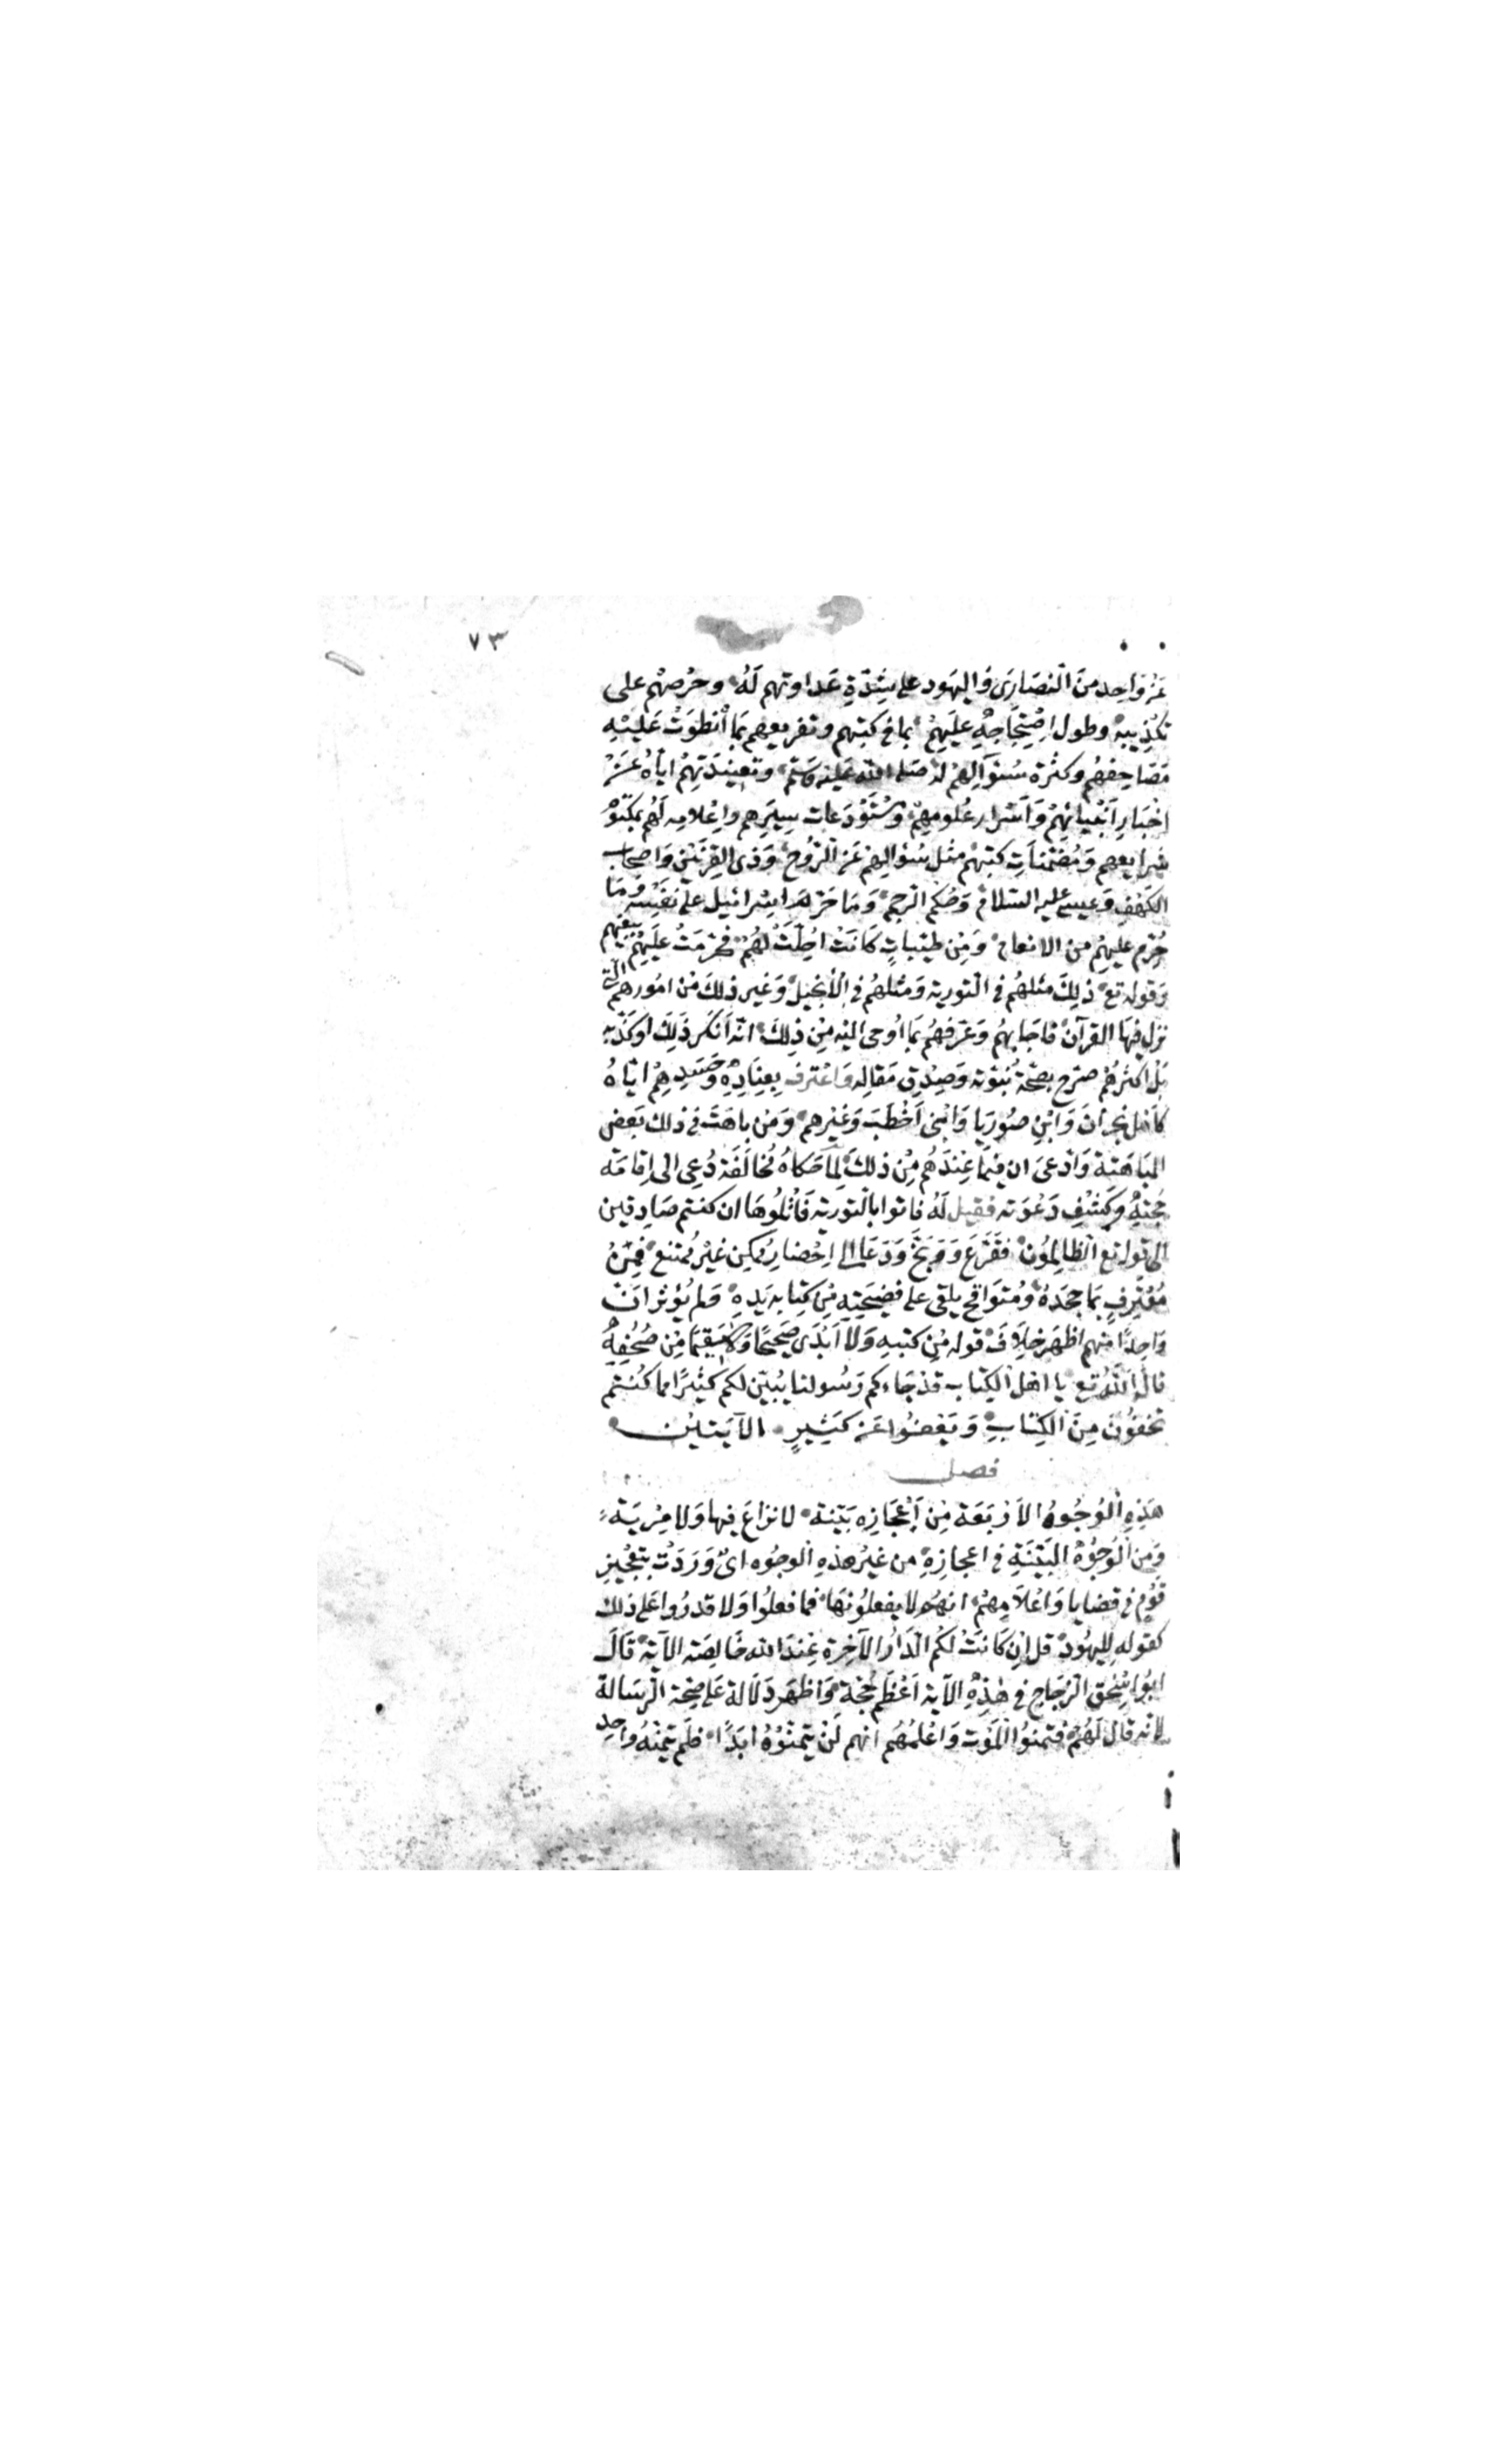 ٧٣
عَنْ وَاحِدٍ منَ النّصَارَى وَاليهَود على شِدّةِ عَداوتهم لَهُ وحْرصهْم على
تكْذِيبهِ وطول احْتِجَاجِهِ عليَهِمْ بما في كتبهم وتقريعهم بمَا انْطوَتْ عَليْهِ
مَصَاحِفهُم وكثْرة سُؤَالِهمْ لهُ صَلى الله عَليْه وَسَلّم وتعنِيتهِمْ ايّاهُ عَنْ
اخْبَارِ اَنْبيائهِمْ وَاَسْرار عُلومِهمْ وَمُسْتَوْدَعات سِيَرِهم واِعْلامِه لَهُم بمكْتوُمِ
شرايعهم وَمُضَمّناَتِ كتبهْم مثْل سُؤالِهمْ عَنِ الرّوُح وَذى القَرنَيْن وَاصحاب
الكهْفِ وَعيسى عليه السّلام وَحُكم الرّجم وَمَا حَرّم اسْرائيل على نفَسْه وَمَا
حُرّم عليَهِمْ من الانعام وَمِنْ طيّباتٍ كَانَتْ اُحِلّتْ لهُمْ فحُرّمَتْ عليَهِمْ ببغيهم
وَقوله تع ذلِكَ مثلهُم في التّوريةِ وَمثلهُم في الْاِنجيل وَغير ذلكَ مْن امُورهم الّتى
نزل فيهَا القرآن فاجَابهُم وَعَرّفهُم بمَا اُوحى اليْه مِنْ ذلِكَ انّهُ اَنكَر ذَلِكَ اَوكَذّبه
بَلْ اكثرُهُم صَرّح بصَحّة نُبُوّته وَصِدْقِ مَقالِه وَاعْترف بِعِنَادِهِ وَحَسَدِهِمْ ايّاهُ
كَاَهْل نجرانَ وَابْنِ صُورَيا وَابْنَى اَخْطَبَ وَغَيْرِهم وَمَنْ باهَتَ فى ذلك بَعض
المبَاهَتة وَادّعىَ ان فيمَا عِنْدَهُم مِنْ ذلكَ لِمَا حَكاهُ مُخَالَفَة دُعِى الى اِقامَة
حُجّتِهِ وَكَشْفِ دَعْوَته فقيل لَهُ فاتوا بالتّوريةِ فَاتْلُوهَا ان كنتم صَادِقين
الى قوله تع الظّالِموُنَ فقَرّعَ وَوَبّخَ وَدَعَا الى اِحْضارِ مُمكِنٍ غيْرِ مُمتنع فمِنْ
مُعْتَرِفٍ بمَا جحَدَهُ وَمُتَوَاقحٍ يلقى على فضِيحَتِهِ مِنْ كِتابه يَدَهِ وَلم يُؤْثر انّ
وَاحِدًا منهم اظهَر خِلاَفَ قوله مِنْ كتبهِ وَلاَ اَبْدَى صَحيحًا وَلا سَقيمًا مِنْ صُحُفِهِ
قالَ الله تع يا اهْل الكِتاب قدْ جَاءكم رَسُولنا يُبيّن لكم كثيرًا مما كُنتم
تخفوُنَ مِنَ الكِتابِ وَيَعْفُوا عَنْ كَثيرٍ الآيَتيْن
فصل
هَذِهِ الْوُجُوهُ الاَرْبَعَة مِنْ اَعْجَازِه بَيّنة لا نزاعَ فيها وَلا مِرْيَة
وَمن الوُجُوْه البَيّنَةِ فى اعجازِهِ من غيْرِ هذهِ الْوجُوه اىٌ وَرَدَتْ بتعْجيز
قوْمٍ فى قضايا وَاعْلاَمِهمْ انهُم لا يفعلُونهَا فما فعلوُا وَلا قدرُوا عَلى ذلك
كقولهِ لِليهُود قل اِن كَانتْ لَكُم الدّارُ الآخِرة عِندَ الله خَالِصَة الآية قَالَ
ابوُ اِسْحٰق الزّجّاج فى هٰذِهِ الآية اَعْظم حُجّة وَاظهَر دَلاَلة عَلى صِحّة الرّسَالة
لانّه قال لَهُمْ فتمنّوُا الْمَوْت وَاعْلمُهُم انهم لَنْ يتمنّوْهُ ابَدًا فلَم يتمنّهُ واحِد